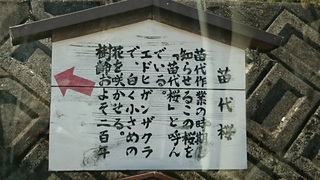 苗代桜
苗代作業の時期を
知らせるこの桜を
「苗代桜」と呼ん
でいる。
エドヒガンザクラ
で、白く小さめの
花を咲かせる。
樹齢およそ二百年